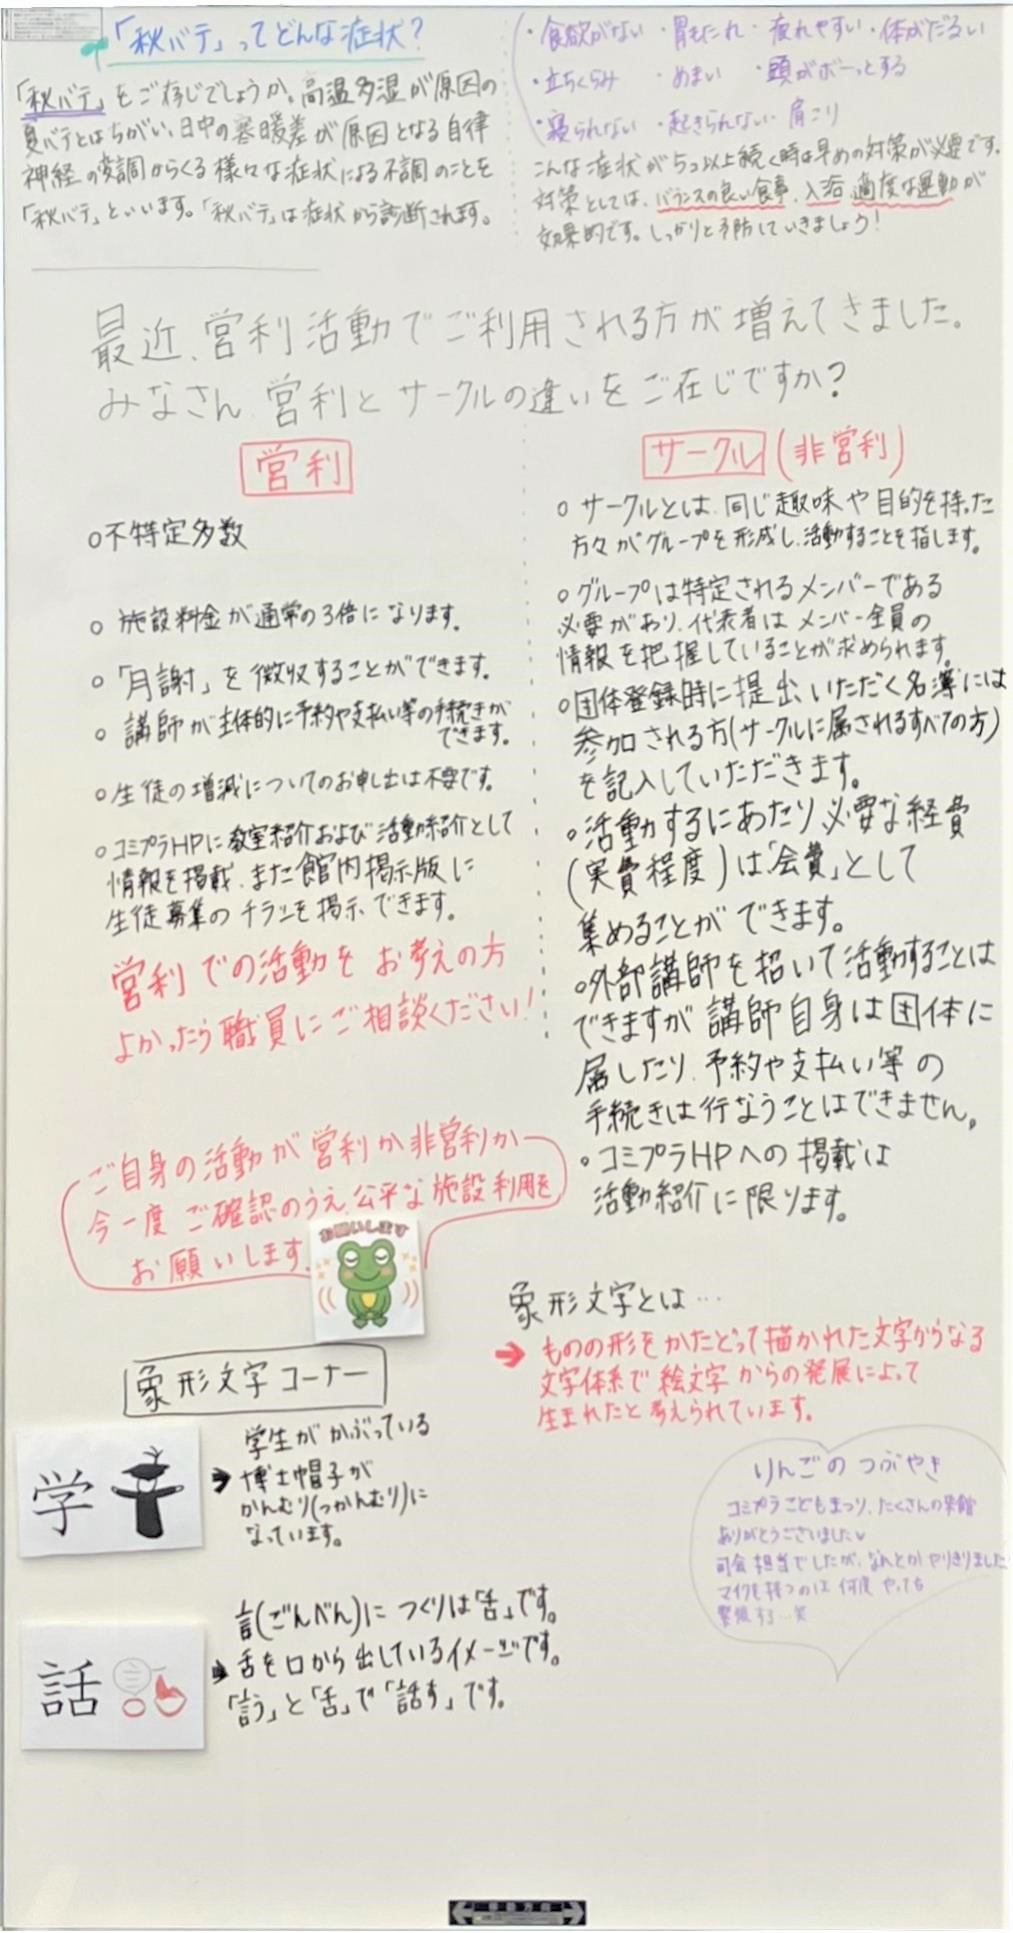 「秋バテ」ってどんな症状?
「秋バテ」をご存じでしょうか。高温多湿が原因の
夏バテとはちがい、日中の寒暖差が原因となる自律
神経の変調からくる様々な症状による不調のことを
「秋バテ」といいます。「秋バテ」は症状から診断されます。
・食欲がない ・胃もたれ ・疲れやすい ・体がだるい
・立ちくらみ ・めまい ・頭がボーっとする
・寝られない ・起きられない ・肩こり
こんな症状が5つ以上続く時は早めの対策が必要です。
対策としては、バランスの良い食事、入浴、適度な運動が
効果的です。しっかりと予防していきましょう!
最近、営利活動でご利用される方が増えてきました。
みなさん、営利とサークルの違いをご在じですか?
営利
○不特定多数
○施設料金が通常の3倍になります。
○「月謝」を徴収することができます。
○講師が主体的に予約や支払い等の手続きが
できます。
○生徒の増減についてのお申し出は不要です。
○コミプラHPに教室紹介および活動紹介として
情報を掲載、また館内掲示版に
生徒募集のチラシを掲示できます。
営利での活動をお考えの方
よかったら職員にご相談ください!
サークル(非営利)
○サークルとは、同じ趣味や目的を持った
方々がグループを形成し、活動することを指します。
○グループは特定されるメンバーである
必要がおり、代表者はメンバー全員の
情報を把握していることが求められます。
○団体登録時に提出いただく名簿には
参加される方(サークルに属されるすべての方)
を記入していただきます。
○活動するにあたり、必要な経費
(実費程度)は「会費」として
集めることができます。
○外部講師を招いて活動することは
できますが講師自身は団体に
属したり、予約や支払い等の
手続きは行なうことはできません。
○コミプラHPへの掲載は
活動紹介に限ります。
ご自身の活動が営利か非営利か
今一度ご確認のうえ、公平な施設利用を
お願いします。
お願いします
象形文字とは…
➔ ものの形をかたどって描かれた文字からなる
文字体系で絵文字からの発展によって
生まれたと考えられています。
象形文字コーナー
学
➔ 学生がかぶっている
博士帽子が
かんむり(つかんむり)に
なっています。
話
➔ 言(ごんべん)につくりは「舌」です。
舌を口から出しているイメージです。
「言う」と「舌」で「話す」です。
りんごのつぶやき
コミプラこどもまつり、たくさんの来館
ありがとうございました♥
司会担当でしたが、なんとかやりきりました
マイクを持つのは何度やっても
緊張する…笑